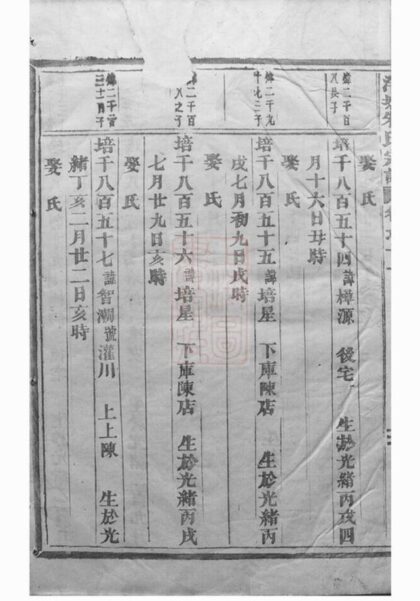 氏宗譜
娶 氏
二千百
八長子
培千八百五十四諱樟源 後宅 生於光緒丙戌四
月十六日丑時
娶 氏
二千九
二子
培千八百五十五諱培星 下庫陳店 生於光緒丙
戌七月初九日戌時
娶 氏
二千百
八之子
培千八百五十六諱培星 下庫陳店 生於光緒丙戌
七月廿九日亥時
娶 氏
二千
子
培千八百五十七諱智潮號灌川 上上陳 生於光
緒丁亥二月廿二日亥時
娶 氏